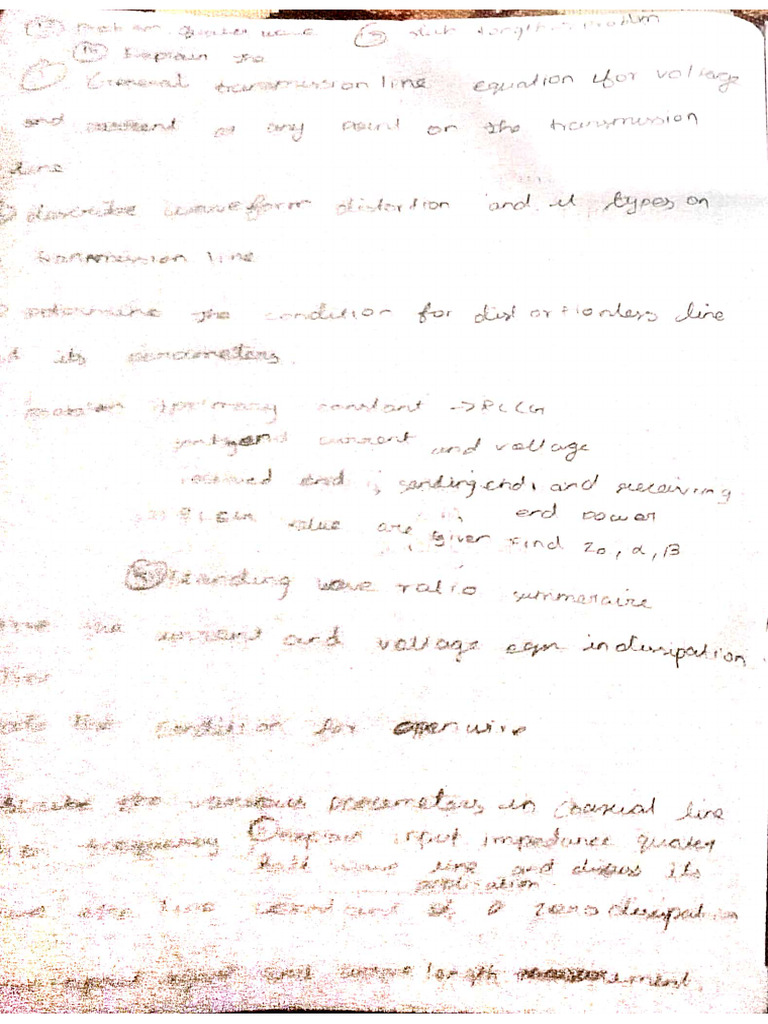 Problem quater wave ⑥ stub length problem
⑭ Explain the
① General transmission line equation for voltage
and current at any point on the transmission
line
describe waveform distortion and it types on
transmission line
Determine the condition for distortionless line
its parameters.
Problem primary constant → RLCG
current and voltage
received end sending end, and receiving
end power
RLCG value are given find Z0, α, β
standing wave ratio summeraire
the current and voltage eqn in dissipation
line
the condition for open wire
the various parameters in coaxial line
frequency explain input impedance quater
half wave line and discus its
application
the line constant of 0 zero dissipation
and wave length measurement